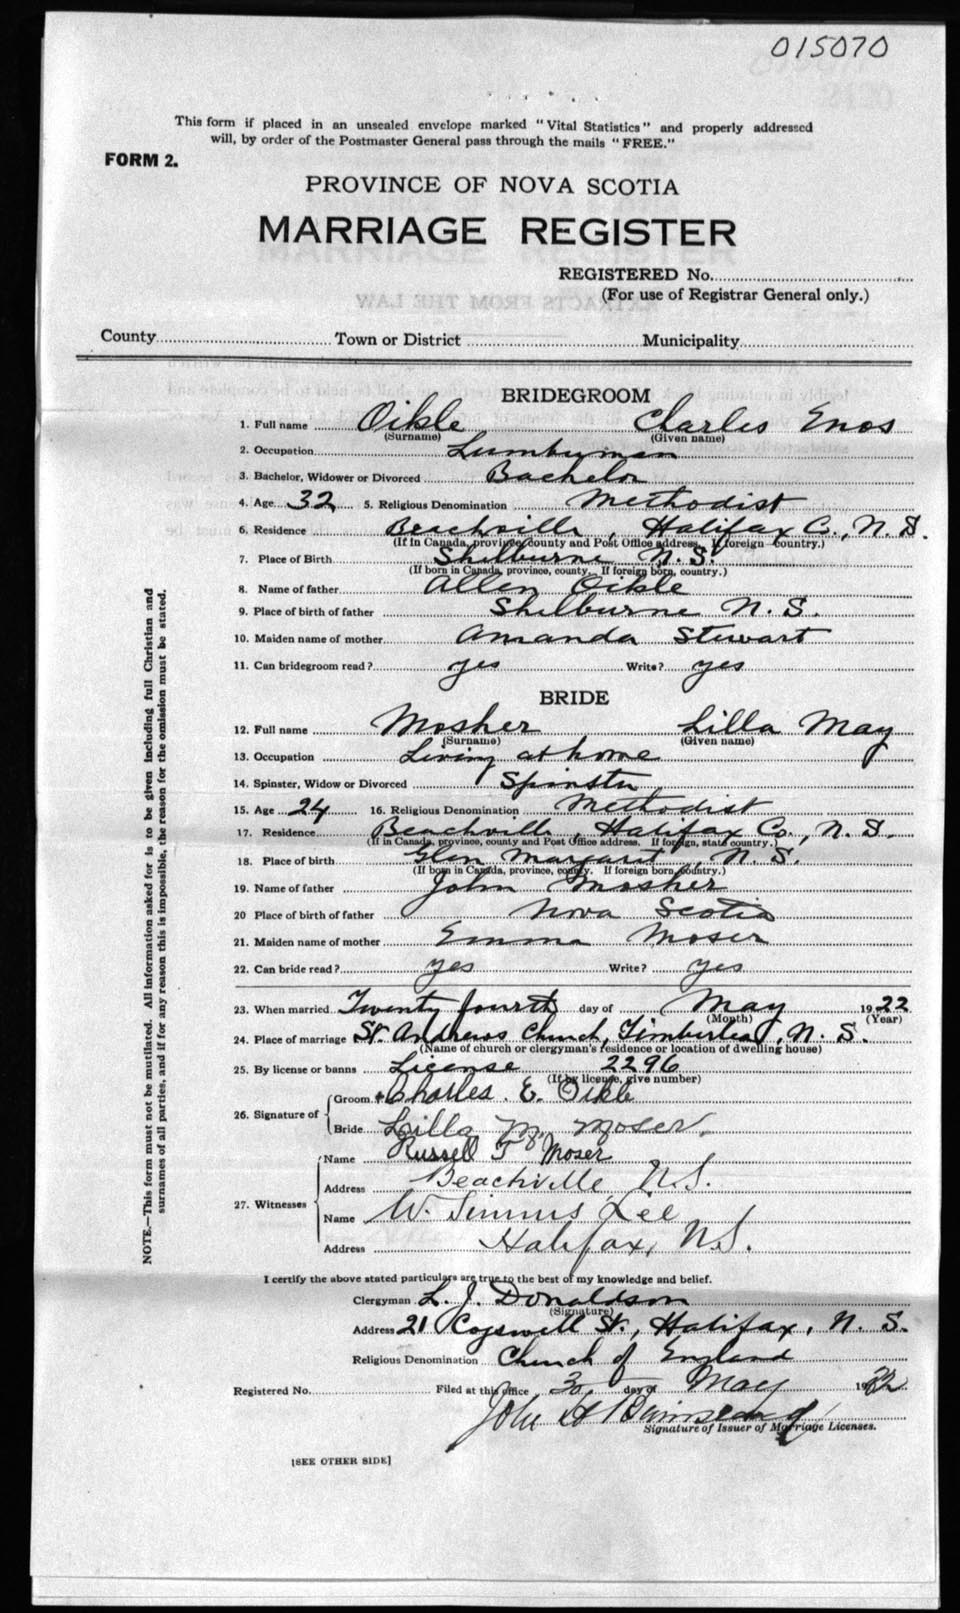 015070
This form if placed in an unsealed envelope marked "Vital Statistics" and properly addressed
will, by order of the Postmaster General pass through the mails "FREE."
FORM 2.
PROVINCE OF NOVA SCOTIA
MARRIAGE REGISTER
REGISTERED No.
(For use of Registrar General only.)
County Town or District Municipality
BRIDEGROOM
1. Full name Oikle Charles Enos
(Surname) (Given name)
2. Occupation Lumberman
3. Bachelor, Widower or Divorced Bachelor
4. Age 32 5. Religious Denomination Methodist
6. Residence Beachville, Halifax Co., N. S.
(If in Canada, province, county and Post Office address. If foreign—country.)
7. Place of Birth Shelburne N. S.
(If born in Canada, province, county. If foreign born, country.)
8. Name of father Allen Oikle
9. Place of birth of father Shelburne N. S.
10. Maiden name of mother Amanda Stewart
11. Can bridegroom read? yes Write? yes
BRIDE
12. Full name Mosher Lilla May
(Surname) (Given name)
13. Occupation Living at home
14. Spinster, Widow or Divorced Spinster
15. Age 24 16. Religious Denomination Methodist
17. Residence Beachville, Halifax Co., N. S.
(If in Canada, province, county and Post Office address. If foreign, state country.)
18. Place of birth Glen Margaret, N. S.
(If born in Canada, province, county. If foreign born, country.)
19. Name of father John Mosher
20 Place of birth of father Nova Scotia
21. Maiden name of mother Emma Moser
22. Can bride read? yes Write? yes
23. When married Twenty fourth day of May 1922
(Month) (Year)
24. Place of marriage St. Andrews Church, Timberlea, N. S.
(Name of church or clergyman's residence or location of dwelling house)
25. By license or banns License 2296
(If by license, give number)
26. Signature of
Groom Charles. E. Oikle
Bride Lilla M. Moser.
27. Witnesses
Name Russell T Moser
Address Beachville, N.S.
Name W. Simms Lee
Address Halifax, N.S.
I certify the above stated particulars are true to the best of my knowledge and belief.
Clergyman L. J. Donaldson
(Signature)
Address 21 Cogswell St., Halifax, N. S.
Religious Denomination Church of England
Registered No. Filed at this office 30 day of May 1922
John H
Signature of Issuer of Marriage Licenses.
[SEE OTHER SIDE]
NOTE.—This form must not be mutilated. All information asked for is to be given including full Christian and
surnames of all parties, and if for any reason this is impossible, the reason for the omission must be stated.